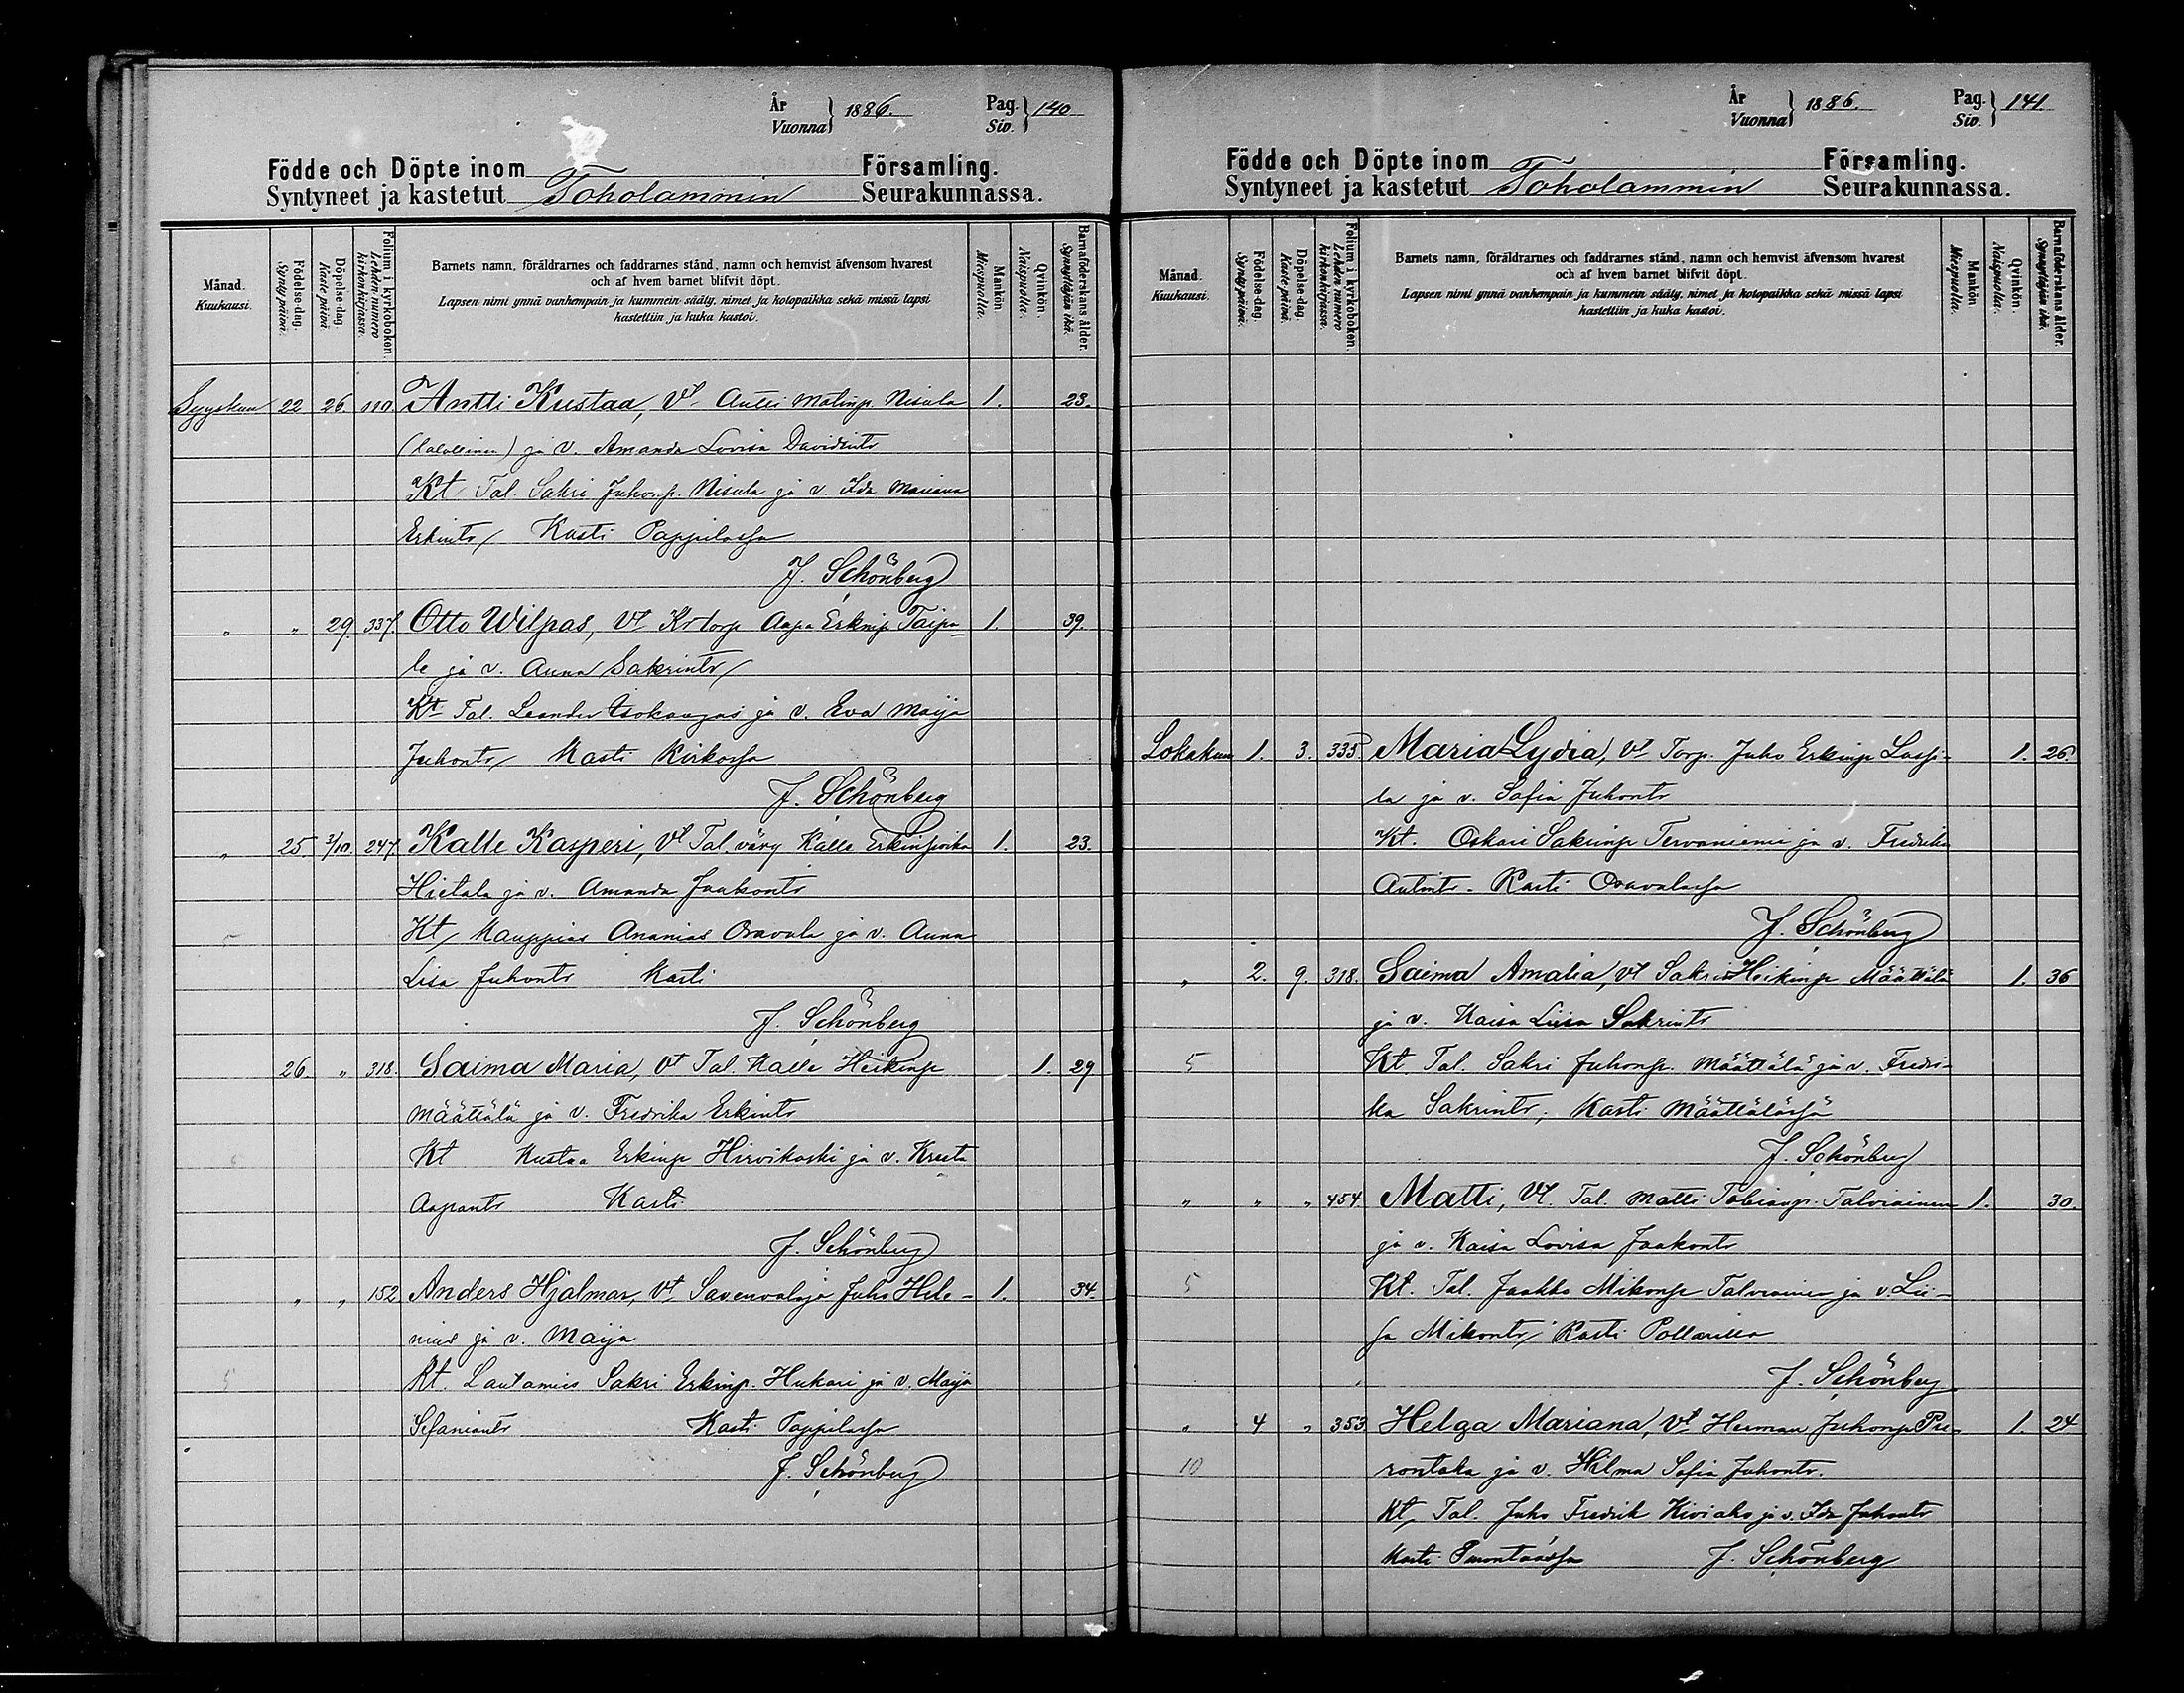 År
Vuonna } 1886.
Pag.
Siv. } 140
Födde och Döpte inom Församling.
Syntyneet ja kastetut Toholammin Seurakunnassa.
Månad.
Kuukausi.
Födelse-dag.
Syntypäivä.
Döpelse-dag.
Kastepäivä.
Folium i kyrkoboken.
Lehden numero kirkonkirjassa.
Barnets namn, föräldrarnes och faddrarnes stånd, namn och hemvist äfvensom hvarest
och af hvem barnet blifvit döpt.
Lapsen nimi ynnä vanhempain ja kummein sääty, nimet ja kotopaikka sekä missä lapsi
kastettiin ja kuka kastoi.
Mankön
Miespuolia.
Qvinkön.
Naispuolia.
Barnaföderskans ålder.
Synnyttäjän ikä.
Syyskuu 22 26. 110. Antti Kustaa, Vt Antti Matinp. Nisula 1. 23.
ja v. Amanda Lovisa Davidintr
Kt Tal. Sakri Juhonp. Nisula ja v. Ida Mariana
Erkintr Kasti Pappilassa
J. Schönberg
" " 29. 337. Otto Wilpas, Vt Krtorp Aapa Erkinp Taipa- 1. 39.
le ja v. Anna Sakrintr
Kt Tal. Leander Isokangas ja v. Eva Maija
Juhontr Kasti Kirkossa
J. Schönberg
" 25. 3/10. 247. Kalle Kasperi, Vt Tal. vävy Kalle Erkinpoika 1. 23.
Hietala ja v. Amanda Jaakontr
Kt Kauppias Ananias Oravala ja v. Anna
Lisa Juhontr Kasti
J. Schönberg
26. " 318. Saima Maria, Vt Tal. Kalle Heikinp 1. 29
Määttälä ja v. Fredrika Erkintr
Kt Kustaa Erkinp Hirvikoski ja v. Kreeta
Aapontr Kasti
J. Schönberg
" " 152 Anders Hjalmar, Vt Savenvalaja Juho Hele- 1. 34.
nius ja v. Maija
5 Kt. Lautamies Sakri Erkinp. Hukari ja v. Maija
Sefaniantr Kasti Pappilassa
J. Schönberg
År
Vuonna } 1886.
Pag.
Siv. } 141
Födde och Döpte inom Församling.
Syntyneet ja kastetut Toholammin Seurakunnassa.
Månad.
Kuukausi.
Födelse-dag.
Syntypäivä.
Döpelse-dag.
Kastepäivä.
Folium i kyrkoboken.
Lehden numero kirkonkirjassa.
Barnets namn, föräldrarnes och faddrarnes stånd, namn och hemvist äfvensom hvarest
och af hvem barnet blifvit döpt.
Lapsen nimi ynnä vanhempain ja kummein sääty, nimet ja kotopaikka sekä missä lapsi
kastettiin ja kuka kastoi.
Mankön
Miespuolia.
Qvinkön.
Naispuolia.
Barnaföderskans ålder.
Synnyttäjän ikä.
Lokakuu 1. 3. 335. Maria Lydia, Vt Torp. Juho Erkinp Lassi- 1. 26.
la ja v. Sofia Juhontr
Kt. Oskari Sakrinp Tervaniemi ja v. Fredrika
Antintr. Kasti Oravalassa
J. Schönberg
" 2. 9. 318. Saima Amalia, Vt Sakris Heikinp Määttälä 1. 36
ja v. Kaisa Liisa Sakrintr
5 Kt. Tal. Sakri Juhonp. Määttälä ja v. Fredri-
ka Sakrintr, Kasti Määttälässä
J. Schönberg
" " " 454. Matti, Vt. Tal. Matti Tobiasp. Talviainen 1. 30.
ja v. Kaisa Lovisa Jaakontr
5 Kt. Tal. Jaakko Mikonp Talviainen ja v. Lii-
sa Mikontr Kasti Pollarilla
J. Schönberg
" 4 " 353. Helga Mariana, Vt Herman Juhonp Pu- 1. 24
10 rontaka ja v. Hilma Sofia Juhontr.
Kt Tal. Juho Fredrik Kiviaho ja v. Ida Juhontr
Kasti J. Schönberg